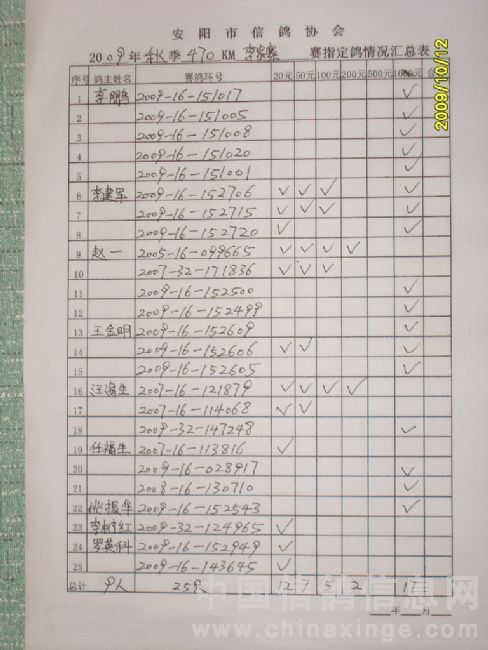 安阳市信鸽协会
2009年秋季470KM 赛指定鸽情况汇总表
序号 鸽主姓名 赛鸽环号 20元 50元 100元 200元 500元 1000元 合
1 李鹏 2009-16-151017 ✓
2 2009-16-151005 ✓
3 2009-16-151008 ✓
4 2009-16-151020 ✓
5 2009-16-151001 ✓
6 李建军 2009-16-152706 ✓ ✓ ✓ ✓
7 2009-16-152715 ✓ ✓ ✓ ✓
8 2009-16-152720 ✓ ✓
9 赵一 2005-16-099665 ✓ ✓ ✓ ✓
10 2007-32-171836 ✓ ✓ ✓
11 2009-16-152500 ✓
12 2009-16-152499 ✓
13 王金明 2009-16-152609 ✓
14 2009-16-152606 ✓ ✓ ✓
15 2009-16-152605 ✓
16 汪海生 2007-16-121879 ✓ ✓ ✓ ✓
17 2007-16-114068 ✓ ✓
18 2009-32-147248 ✓
19 任福生 2007-16-113816 ✓
20 2009-16-028917 ✓
21 2008-16-130710 ✓
22 姚振华 2009-16-152543 ✓
23 李树红 2009-32-124965 ✓
24 罗英科 2009-16-152949 ✓
25 2009-16-143645 ✓
总计 9人 25只 12 7 5 2 17
年 月
2009/10/12
中国信鸽信息网
www.chinaxinge.com